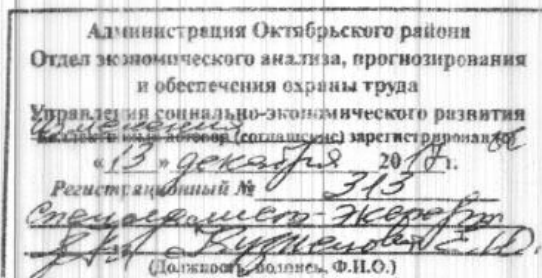 Администрация Октябрьского района
Отдел экономического анализа, прогнозирования
и обеспечения охраны труда
Управления социально-экономического развития
Изменения
договор (соглашение) зарегистрирован
«13» декабря 2017г.
Регистрационный № 313
Специалист-эксперт
Кузнецова Е.Ю.
(Должность, подпись, Ф.И.О.)